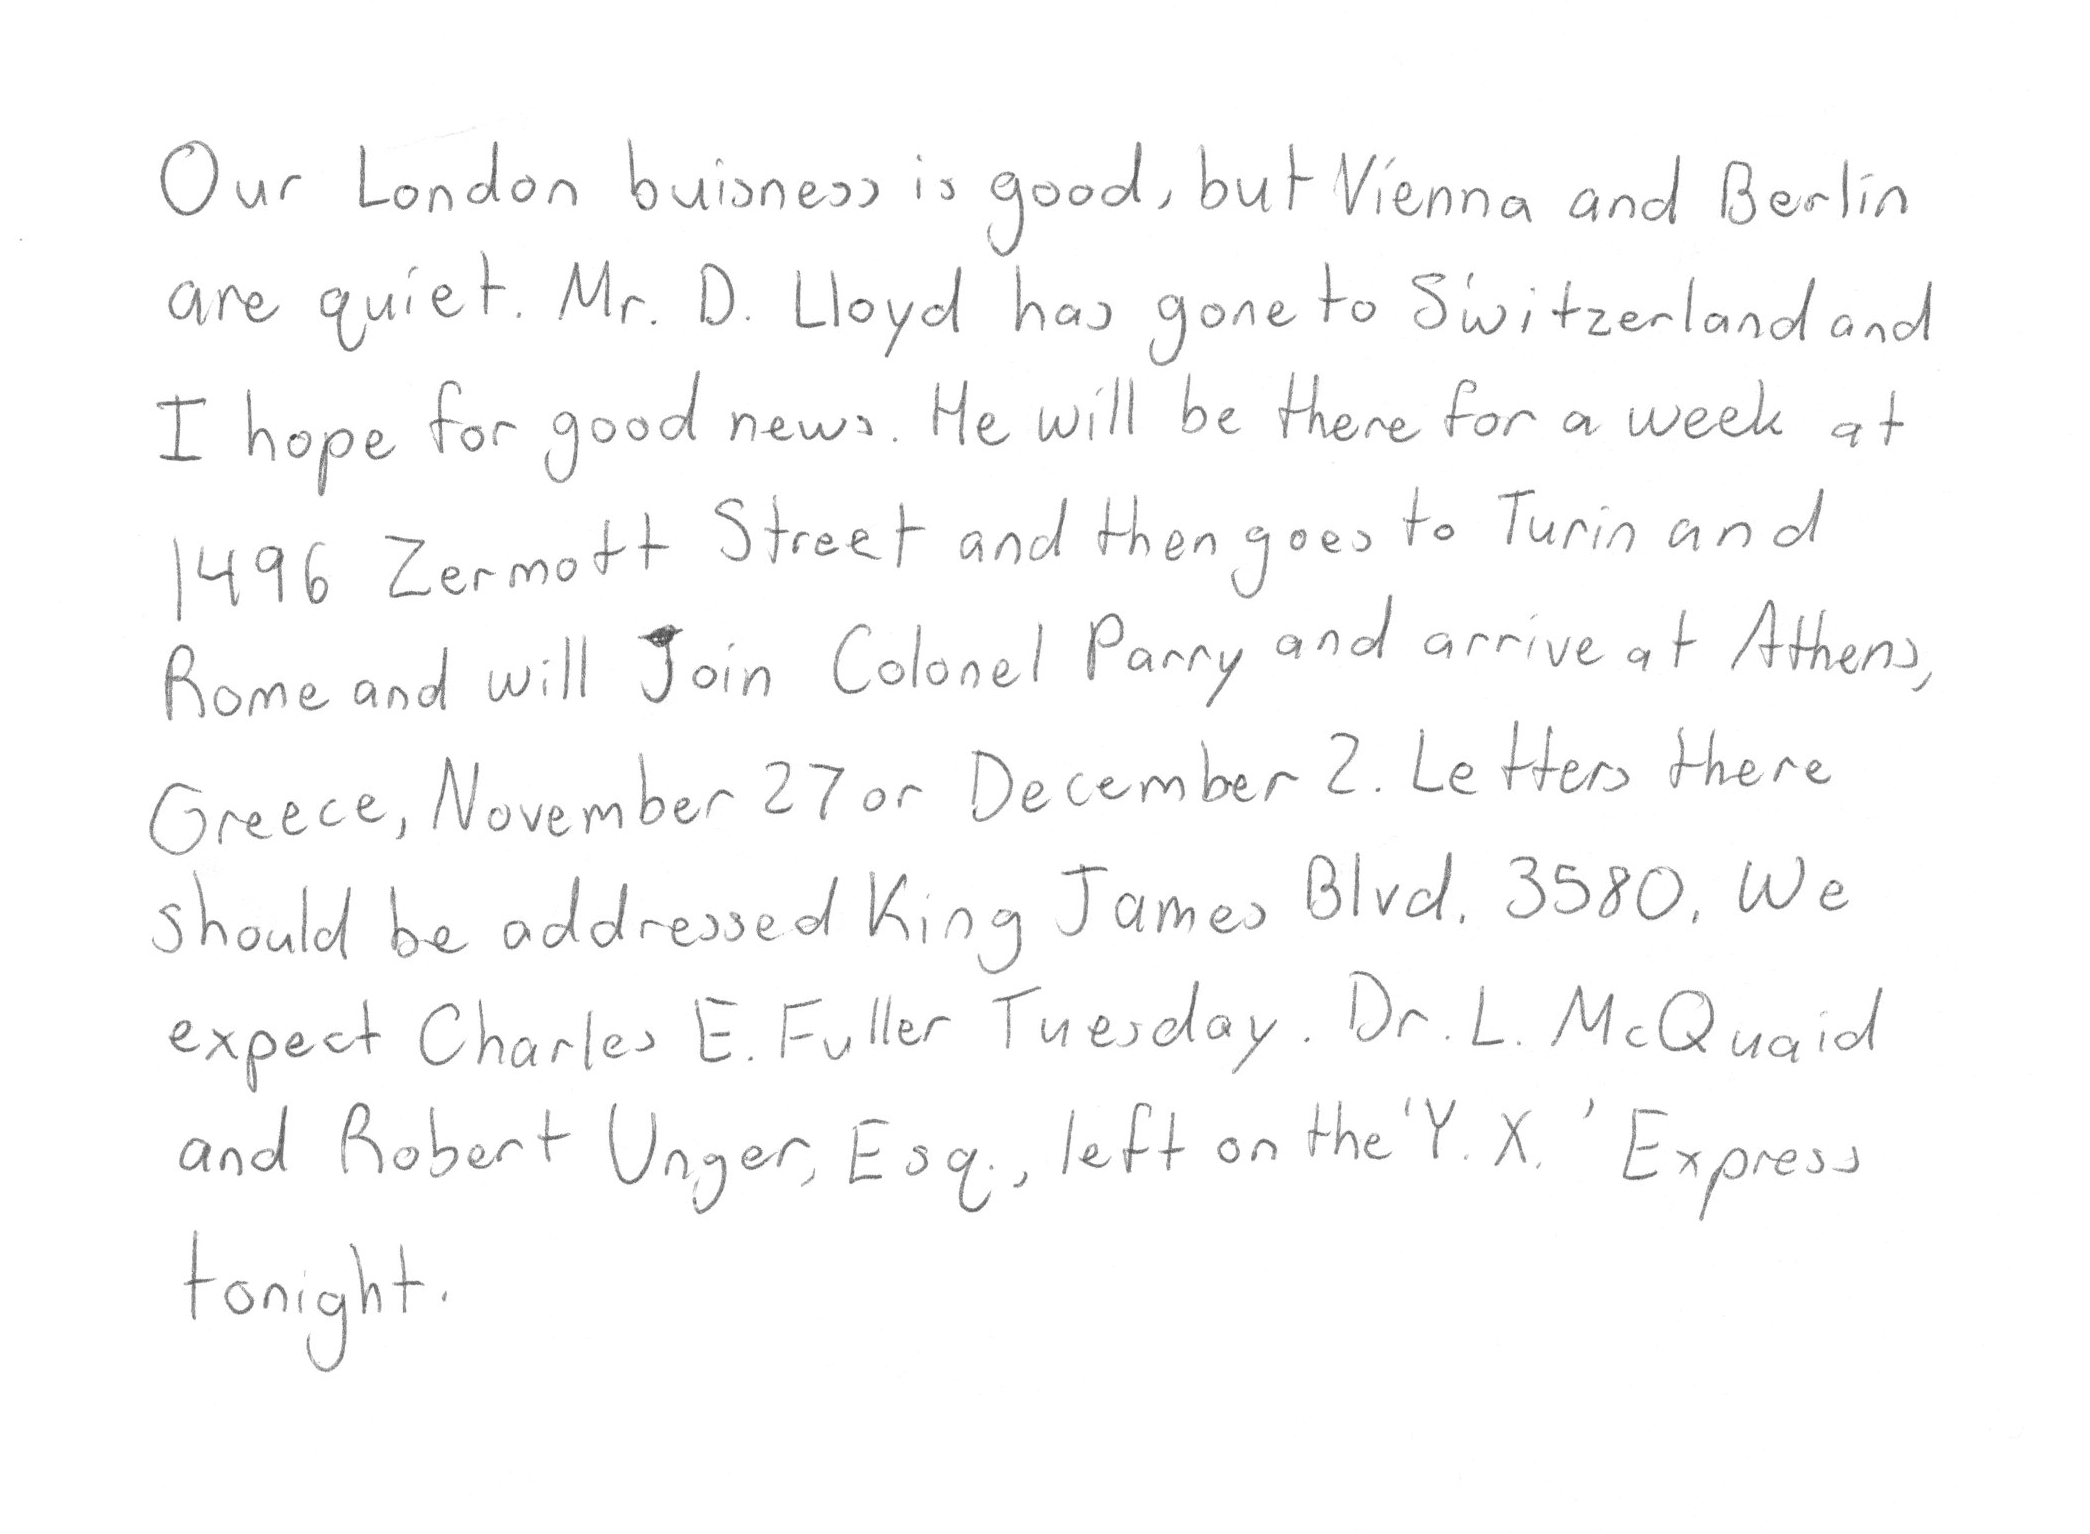 Our London buisness is good, but Vienna and Berlin
are quiet. Mr. D. Lloyd has gone to Switzerland and
I hope for good news. He will be there for a week at
1496 Zermott Street and then goes to Turin and
Rome and will Join Colonel Parry and arrive at Athens,
Greece, November 27 or December 2. Letters there
should be addressed King James Blvd. 3580. We
expect Charles E. Fuller Tuesday. Dr. L. McQuaid
and Robert Unger, Esq., left on the 'Y. X.' Express
tonight.